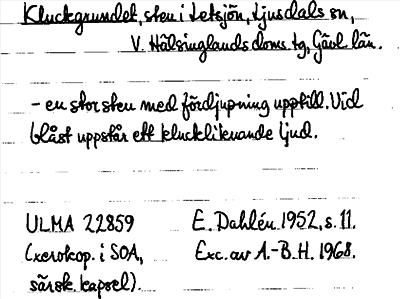 Kluckgrundet, sten i Letsjön, Ljusdals sn,
V. Hälsinglands doms.tg, Gävl. län.
- en stor sten med fördjupning upptill. Vid
blåst uppstår ett kluckliknande ljud.
ULMA 22859 E. Dahlén 1952, s. 11.
(xerokop. i SOA, Exc. av A.-B. H. 1968.
särsk. kapsel).